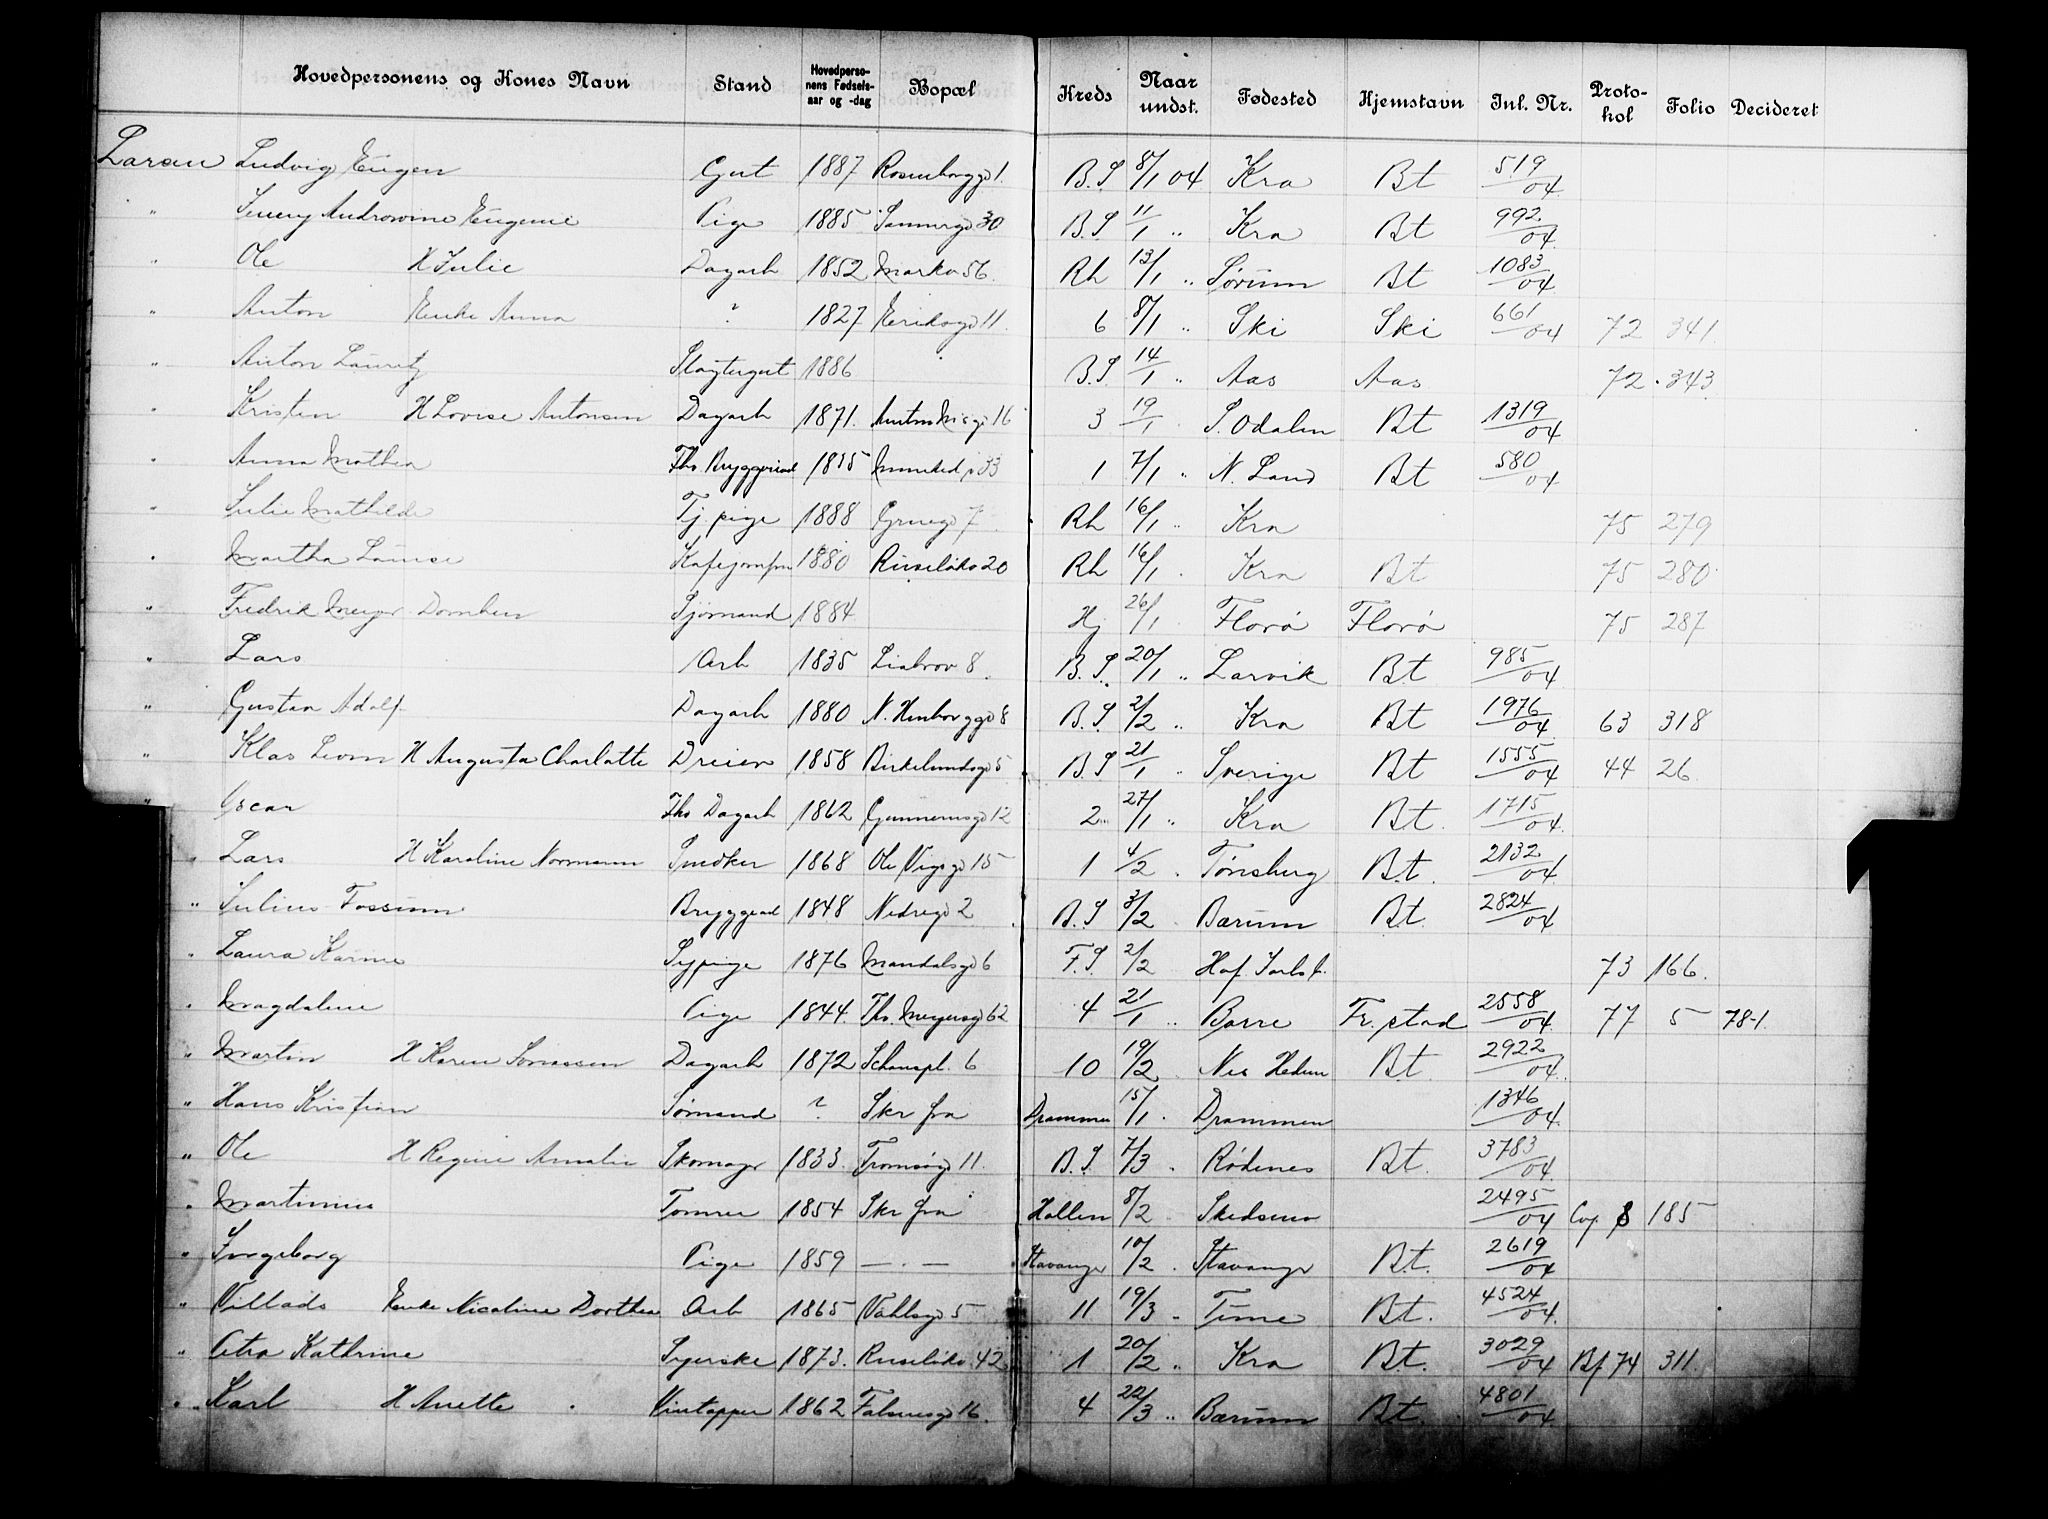 Hovedpersonens og Kones Navn Stand Hovedpersonens Fødselsaar og -dag Bopæl Kreds Naar undst. Fødested Hjemstavn Inl. Nr. Protokol Folio Decideret
Larsen Ludvig Eugen Gut 1887 Rosenborggd 1. B.S 8/1 04 Kra Bt 519/04
" Jenny Eugenie Pige 1885 Sannergd 30 B.S. 11/1 " Kra Bt 992/04
" Ole H Julie Dagarb 1852 Markv 56. Rh 13/1 " Sørum Bt 1083/04
" Anton Enke Anna ? 1827 Eriksgd 11. 6 8/1 " Ski Ski 661/04 72 341.
" Anton Lauritz Slagtergut 1886 B.S. 14/1 " Aas Aas 72. 343
" Kristen H Lovise Antonsen Dagarb 1871. 16 3 19/1 S. Odalen Bt 1319/04
" Anna Mathea Fhv. 33 1 7/1 " N. Land Bt 580/04
" Julie Mathilde Tj. pige 1888 Grüngd 7 Rh 16/1 " Kra 75 279
" Martha Louise 1880 Ruseløkv 20 Rh 16/1 . Kra Bt 75 280
" Fredrik Meyer Sjømand 1884 Hj 26/1 . Florø Florø 75 287
" Lars Arb 1835 Liabrov 8. B.S. 20/1 " Larvik Bt 985/04
" Gustav Adolf Dagarb 1880 8 B.S 2/2 " Kra Bt 1976/04 63 318
" Klas Leon H Augusta Charlotte Dreier 1858 Birkelundsgd 5 B.S 21/1 " Sverige Bt 1555/04 44 26
" Oscar Fhv Dagarb 1862 Gunnerusgd 12 2 27/1 " Kra Bt. 1715/04
" Lars H Karoline Normann Snedker 1868 Ole Vigsgd 15 1 4/2 . Tønsberg Bt. 2132/04
" Julius Fossum 1848 Nedregd 2 B.S 3/2 Bærum Bt. 2824/04
" Laura Karine Sypige 1876 Mandalsgd 6 F.S. 2/2 Hof Jarlsb. 73 166.
" Magdaline Pige 1844. Ths. Meyersgd 62 4 21/1 " Borre Fr. stad 2558/04 77 5 78-1.
" Martin H Karen Dagarb 1872 Schouspl. 6 10 19/2 Nes Hedm Bt. 2922/04
" Hans Kristian Sømand ? Skr fra Drammen 15/1 . Drammen 1346/04
" Ole H Regine Amalie Skomagr 1833. Tromsøgd 11. B.S. 7/3 . Rødenes Bt. 3783/04
" Martinius Tømrer 1854 Skr fra Hallen 8/2 . Skedsmo 2495/04 8 185
" Ingeborg Pige 1859 — . — Stavanger 10/2 . Stavanger Bt. 2619/04
" Villads Enke Nicoline Dorthea Arb 1865 Vahlsgd 5 11 19/3 . Time Bt. 4524/04
" Petra Kathrine Syerske 1873. Ruseløkv. 42 1 20/2 " Kra Bt. 3029/04 Bf 74 311.
" Karl H Anette Vintapper 1862 Falsensgd 16. 4 22/3 " Bærum Bt. 4801/04